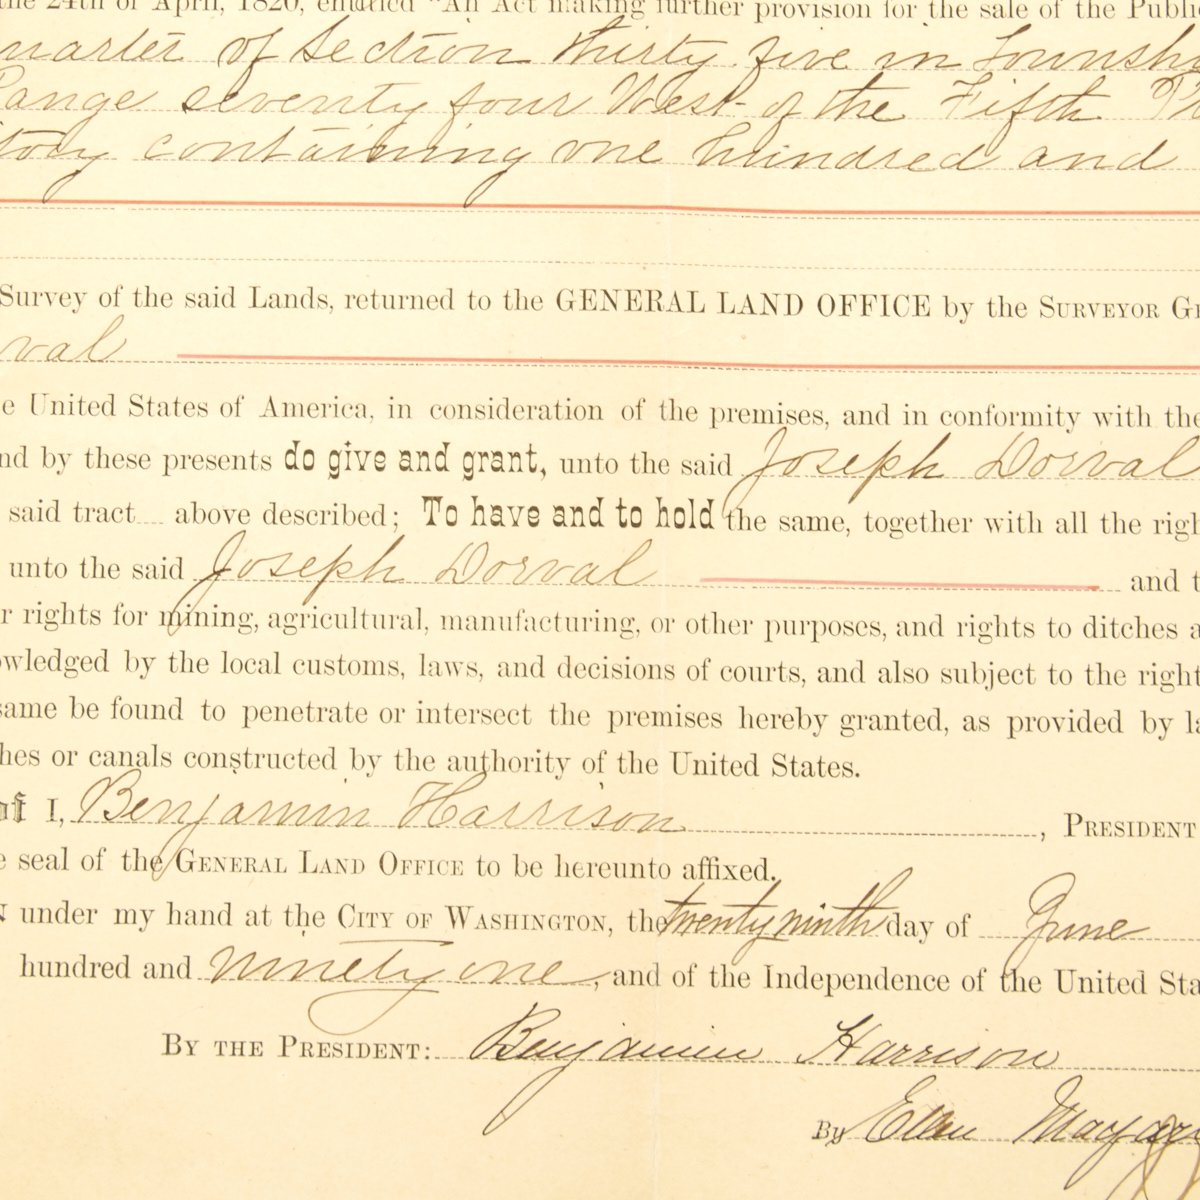 the 24th of April, 1820, entitled "An Act making further provision for the sale of the Public
quarter of Section thirty five in Township
Range seventy four West of the Fifth
itory containing one hundred and
Survey of the said Lands, returned to the GENERAL LAND OFFICE by the SURVEYOR GE
rval
e United States of America, in consideration of the premises, and in conformity with the
nd by these presents do give and grant, unto the said Joseph Dorval
said tract above described; To have and to hold the same, together with all the righ
unto the said Joseph Dorval and t
r rights for mining, agricultural, manufacturing, or other purposes, and rights to ditches a
owledged by the local customs, laws, and decisions of courts, and also subject to the right
same be found to penetrate or intersect the premises hereby granted, as provided by la
hes or canals constructed by the authority of the United States.
of I, Benjamin Harrison, PRESIDENT
e seal of the GENERAL LAND OFFICE to be hereunto affixed.
N under my hand at the CITY OF WASHINGTON, the twenty ninth day of June
hundred and ninety one, and of the Independence of the United Sta
BY THE PRESIDENT: Benjamin Harrison
By Ellen